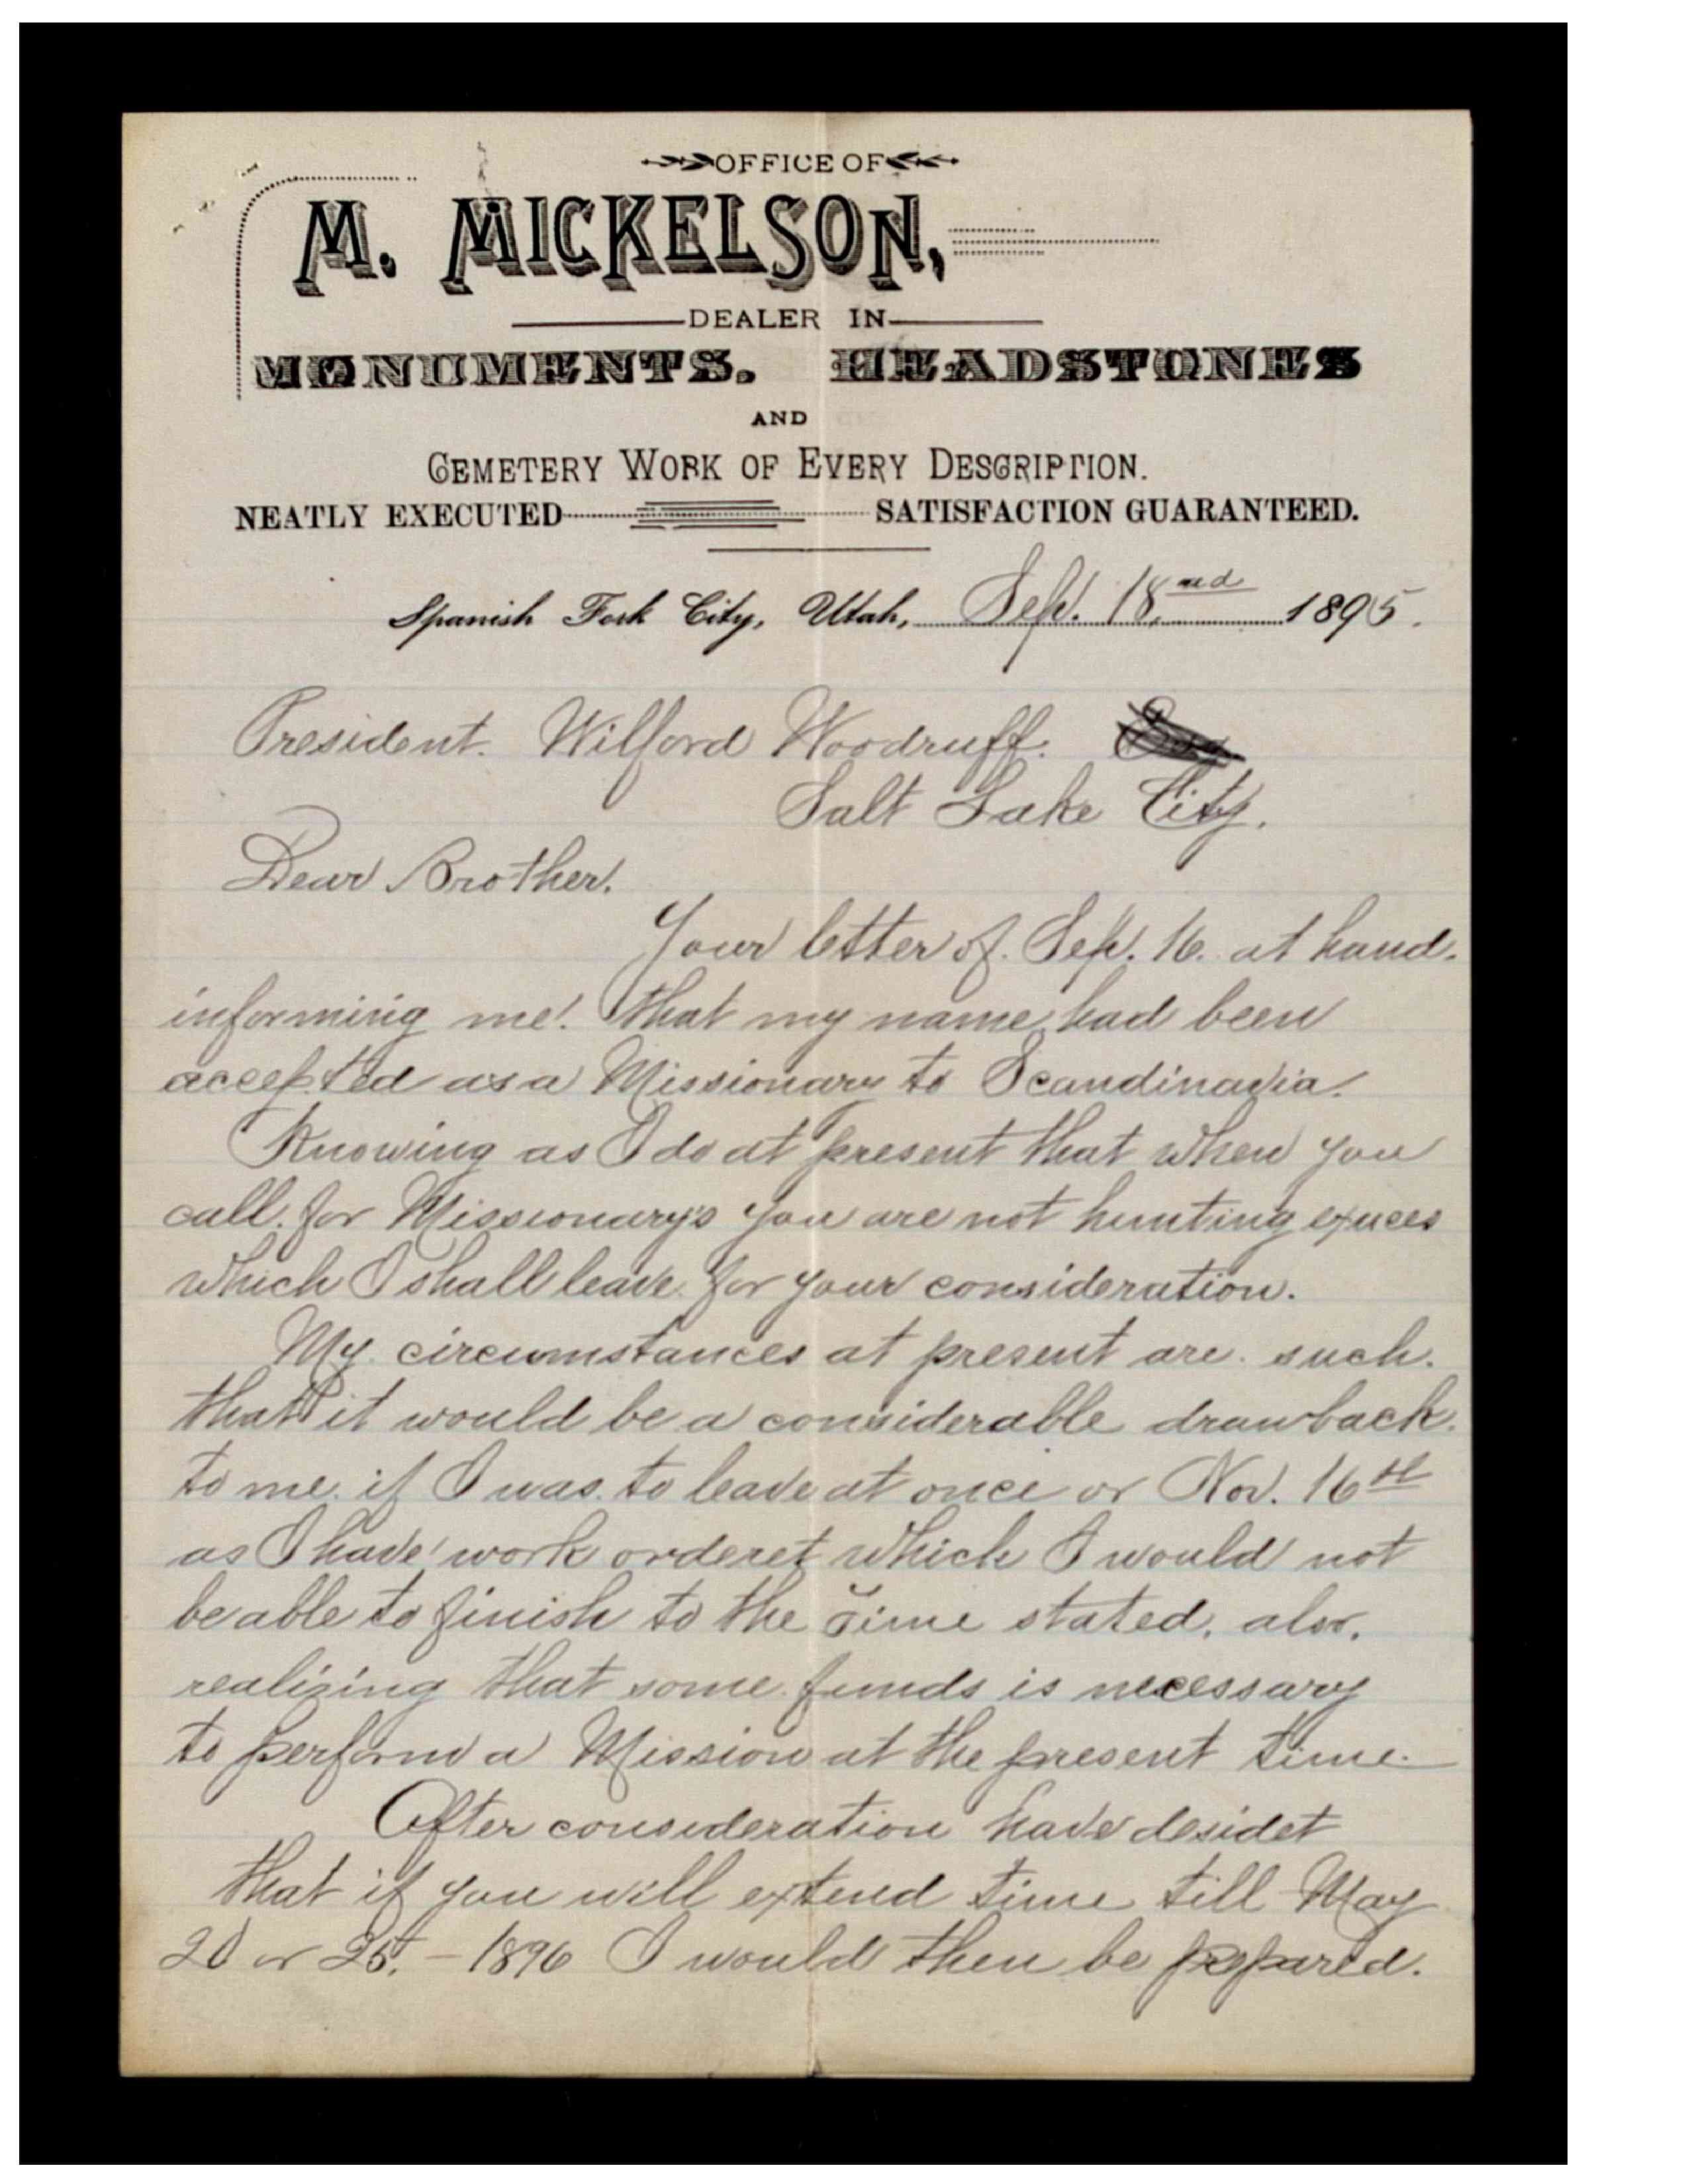 OFFICE OF
M. MICKELSON,
DEALER IN
MONUMENTS. HEADSTONES
AND
CEMETERY WORK OF EVERY DESCRIPTION.
NEATLY EXECUTED SATISFACTION GUARANTEED.
Spanish Fork City, Utah, Sep. 18nd 1895.
President. Wilford Woodruff.
Salt Lake City.
Dear Brother.
Your letter of. Sep. 16. at hand.
informing me. that my name had been
accepted as a Missionary to Scandinavia.
Knowing as I do at present that when you
call. for Missionary's you are not hunting exuces
which I shall leave for your consideration.
My circumstances at present are. such.
that it would be a considerable drawback.
to me. if I was. to leave at once or Nov. 16th
as I have work orderet which I would not
be able to finish to the time stated, also.
realizing that some funds is necessary
to perform a Mission at the present time.
After consideration have desidet
that if you will extend time till May
20 or 25. - 1896 I would then be prepared.